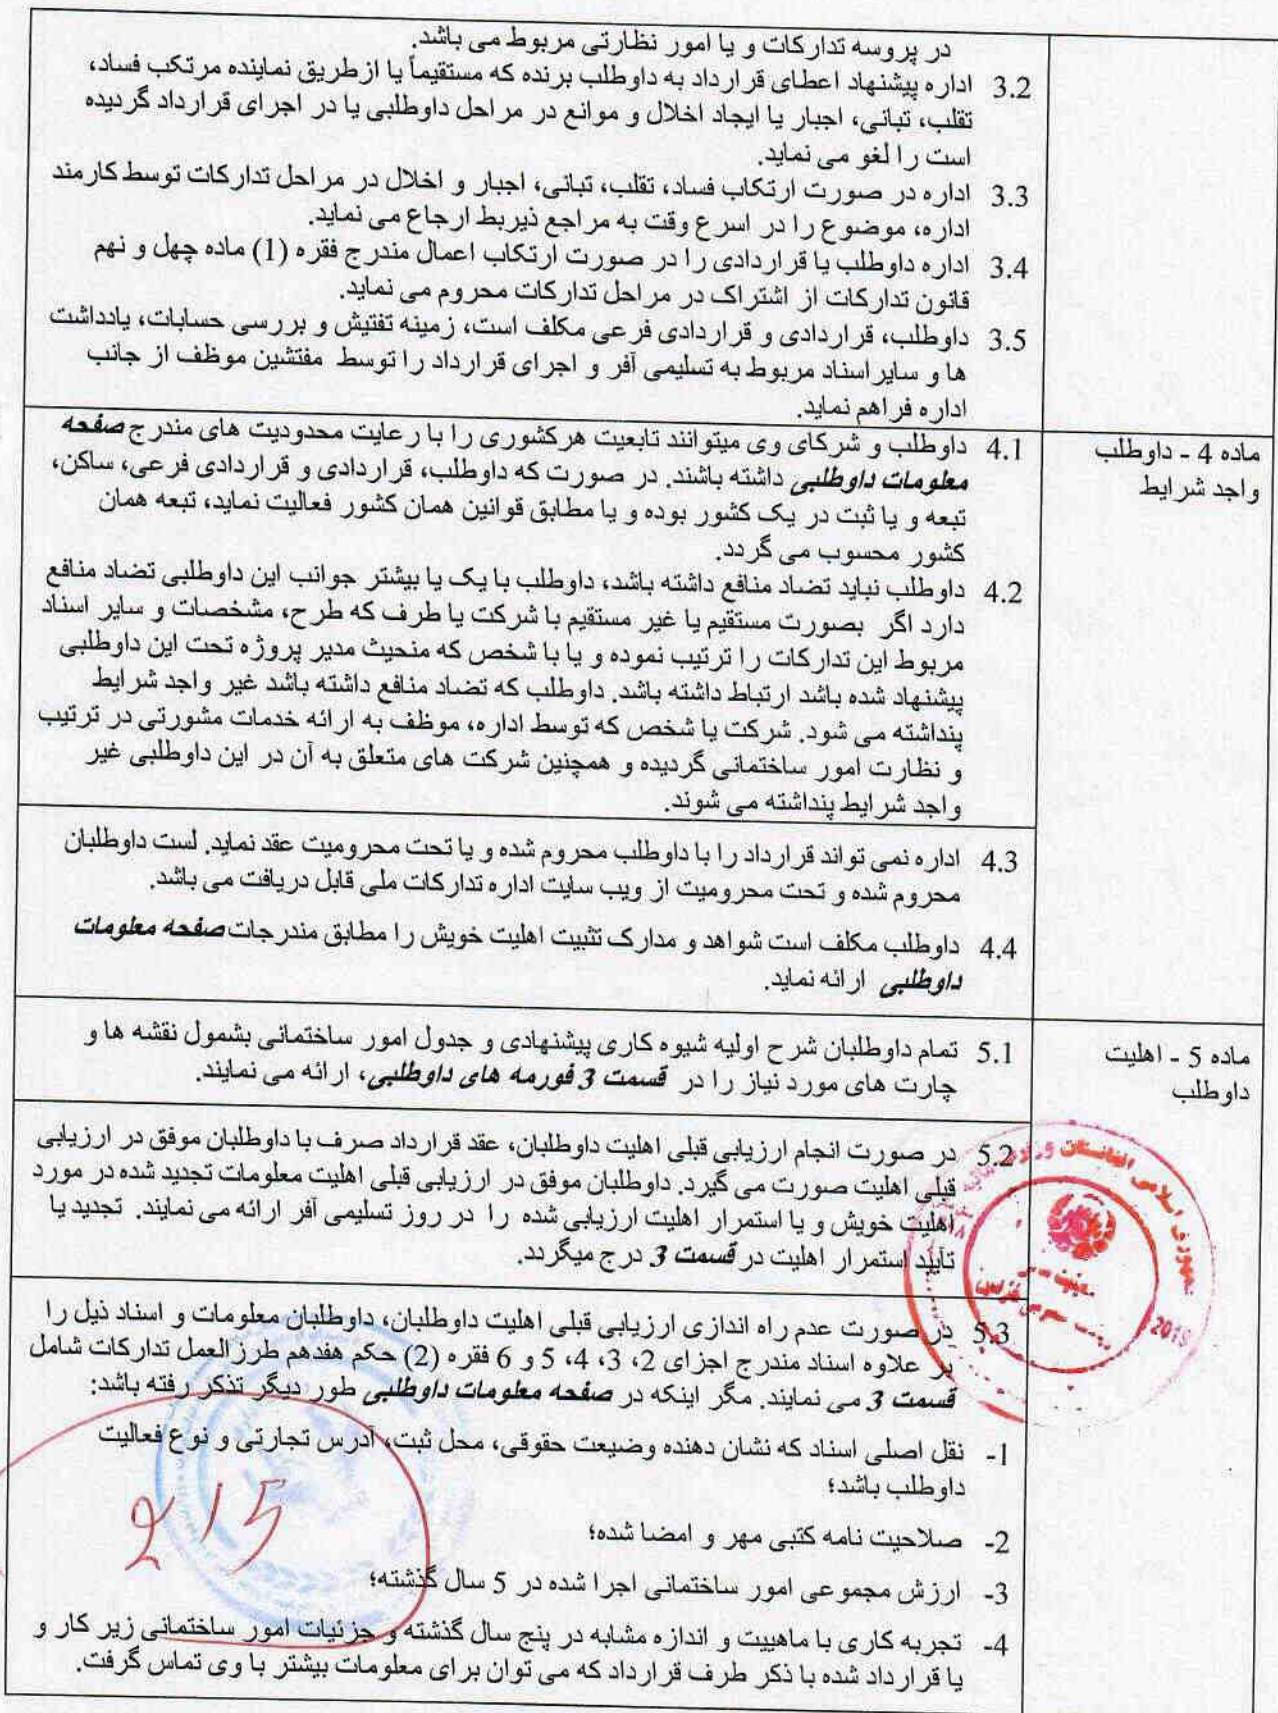 در پروسه تدارکات و یا امور نظارتی مربوط می باشد.
3.2 اداره پیشنهاد اعطای قرارداد به داوطلب برنده که مستقیماً یا ازطریق نماینده مرتکب فساد،
تقلب، تبانی، اجبار یا ایجاد اخلال و موانع در مراحل داوطلبی یا در اجرای قرارداد گردیده
است را لغو می نماید.
3.3 اداره در صورت ارتکاب فساد، تقلب، تبانی، اجبار و اخلال در مراحل تدارکات توسط کارمند
اداره، موضوع را در اسرع وقت به مراجع ذیربط ارجاع می نماید.
3.4 اداره داوطلب یا قراردادی را در صورت ارتکاب اعمال مندرج فقره (1) ماده چهل و نهم
قانون تدارکات از اشتراک در مراحل تدارکات محروم می نماید.
3.5 داوطلب، قراردادی و قراردادی فرعی مکلف است، زمینه تفتیش و بررسی حسابات، یادداشت
ها و سایر اسناد مربوط به تسلیمی آفر و اجرای قرارداد را توسط مفتشین موظف از جانب
اداره فراهم نماید.
ماده 4 - داوطلب
واجد شرایط
4.1 داوطلب و شرکای وی میتوانند تابعیت هرکشوری را با رعایت محدودیت های مندرج صفحه
معلومات داوطلبی داشته باشند. در صورت که داوطلب، قراردادی و قراردادی فرعی، ساکن،
تبعه و یا ثبت در یک کشور بوده و یا مطابق قوانین همان کشور فعالیت نماید، تبعه همان
کشور محسوب می گردد.
4.2 داوطلب نباید تضاد منافع داشته باشد، داوطلب با یک یا بیشتر جوانب این داوطلبی تضاد منافع
دارد اگر بصورت مستقیم یا غیر مستقیم با شرکت یا طرف که طرح، مشخصات و سایر اسناد
مربوط این تدارکات را ترتیب نموده و یا با شخص که منحیث مدیر پروژه تحت این داوطلبی
پیشنهاد شده باشد ارتباط داشته باشد. داوطلب که تضاد منافع داشته باشد غیر واجد شرایط
پنداشته می شود. شرکت یا شخص که توسط اداره، موظف به ارائه خدمات مشورتی در ترتیب
و نظارت امور ساختمانی گردیده و همچنین شرکت های متعلق به آن در این داوطلبی غیر
واجد شرایط پنداشته می شوند.
4.3 اداره نمی تواند قرارداد را با داوطلب محروم شده و یا تحت محرومیت عقد نماید. لست داوطلبان
محروم شده و تحت محرومیت از ویب سایت اداره تدارکات ملی قابل دریافت می باشد.
4.4 داوطلب مکلف است شواهد و مدارک تثبیت اهلیت خویش را مطابق مندرجات صفحه معلومات
داوطلبی ارائه نماید.
ماده 5 - اهلیت
داوطلب
5.1 تمام داوطلبان شرح اولیه شیوه کاری پیشنهادی و جدول امور ساختمانی بشمول نقشه ها و
چارت های مورد نیاز را در قسمت 3 فورمه های داوطلبی، ارائه می نمایند.
5.2 در صورت انجام ارزیابی قبلی اهلیت داوطلبان، عقد قرارداد صرف با داوطلبان موفق در ارزیابی
قبلی اهلیت صورت می گیرد. داوطلبان موفق در ارزیابی قبلی اهلیت معلومات تجدید شده در مورد
اهلیت خویش و یا استمرار اهلیت ارزیابی شده را در روز تسلیمی آفر ارائه می نمایند. تجدید یا
تآیید استمرار اهلیت در قسمت 3 درج میگردد.
جمهوری اسلامی افغانستان
2018
5.3 در صورت عدم راه اندازی ارزیابی قبلی اهلیت داوطلبان، داوطلبان معلومات و اسناد ذیل را
بر علاوه اسناد مندرج اجزای 2، 3، 4، 5 و 6 فقره (2) حکم هفدهم طرزالعمل تدارکات شامل
قسمت 3 می نمایند. مگر اینکه در صفحه معلومات داوطلبی طور دیگر تذکر رفته باشد:
1- نقل اصلی اسناد که نشان دهنده وضیعت حقوقی، محل ثبت، آدرس تجارتی و نوع فعالیت
داوطلب باشد؛
2- صلاحیت نامه کتبی مهر و امضا شده؛
3- ارزش مجموعی امور ساختمانی اجرا شده در 5 سال گذشته؛
4- تجربه کاری با ماهییت و اندازه مشابه در پنج سال گذشته و جزئیات امور ساختمانی زیر کار و
یا قرارداد شده با ذکر طرف قرارداد که می توان برای معلومات بیشتر با وی تماس گرفت.
215